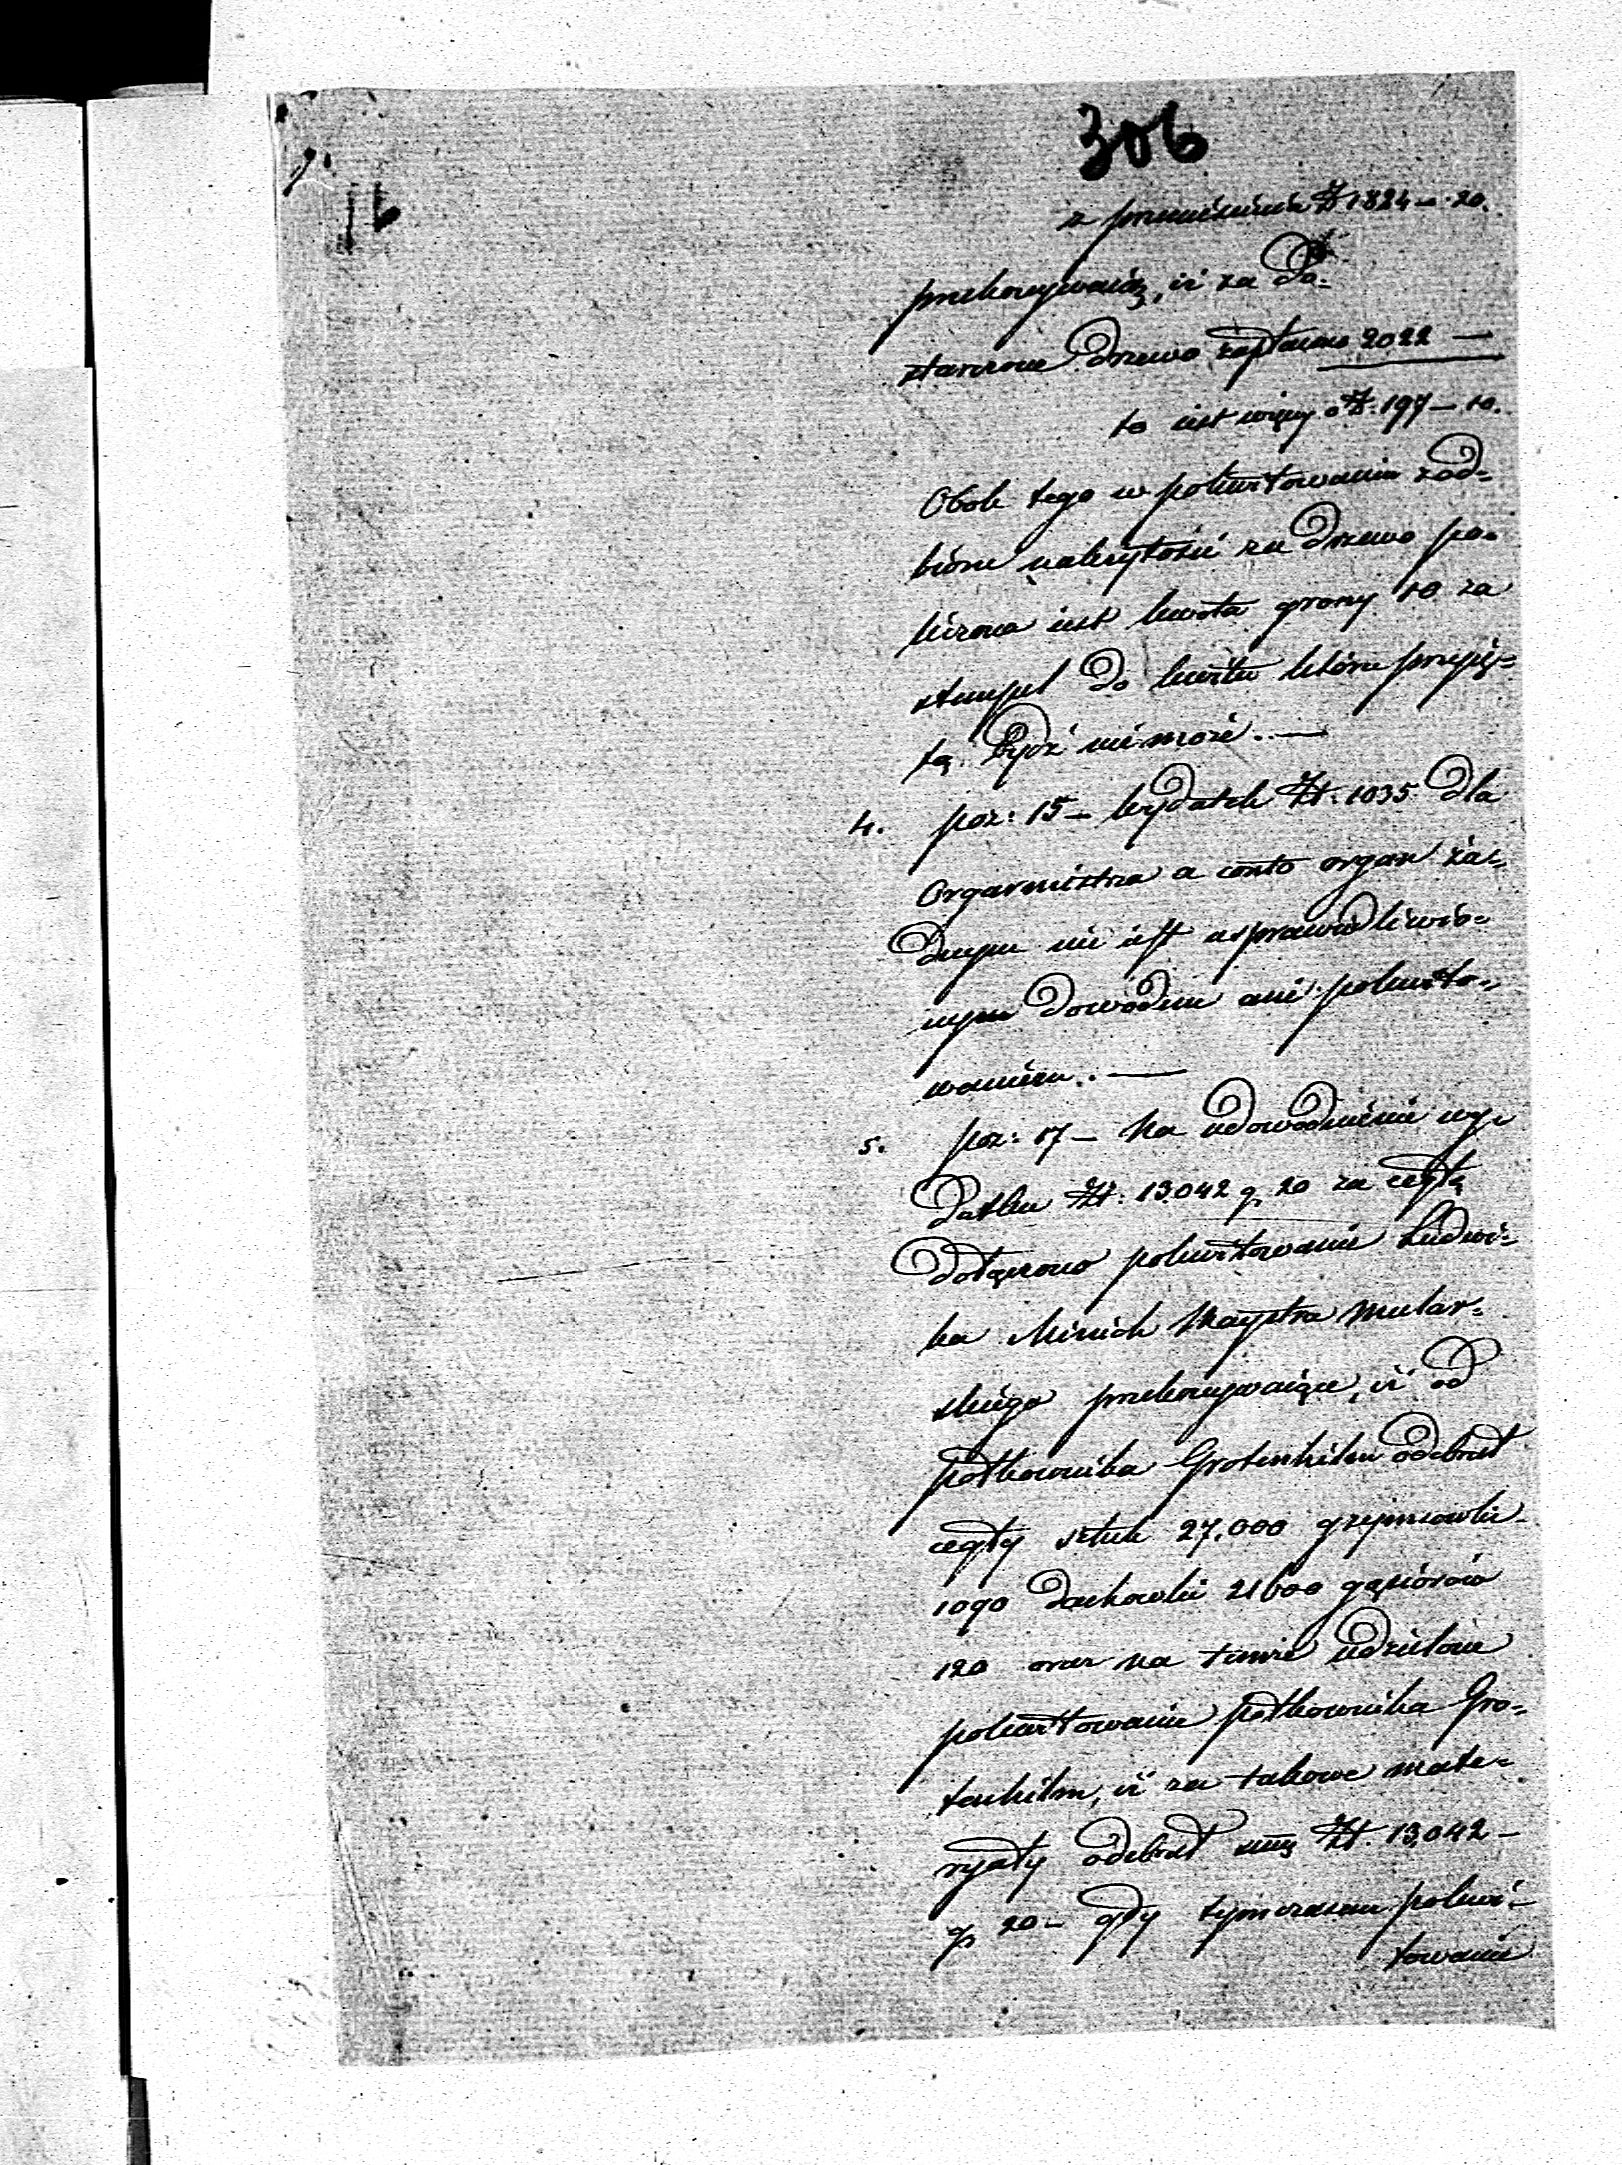 306
16
z przeniesienia Zł 1824 – 20.
przekonywaią, iż za do=
starczone drzewo zapłacono 2022 —
to iest więcy o Zł: 197 – 10.
Obok tego w pokwitowaniu z od=
bioru należytości za drzewo po=
liczona iest kwota groszy 10 za
stempel do kwitu które przyję=
tą bydź nie może. —
4. poz: 15 – Wydatek Zł: 1035 dla
Organmistrza a conto organ żad=
dnym nie iest usprawiedliwio=
nym dowodem ani pokwito=
waniem. —
5. poz: 17 – Na udowodnienie wy=
datku Zł: 13.042 g 20 za cegłę
dołączono pokwitowanie Ludwi=
ka Minich Maystra Mular=
skiego przekonywaiące, iż od
półkownika Grotenhilm odebrał
cegły sztuk 27.000 gzymsowki
1090 dachowki 21600 gąsiorów
120 oraz na tymże udzielone
pokwitowanie półkownika Gro=
tenhilm, iż za takowe mate=
ryały odebrał sumę Zł. 13.042 –
g 20 – gdy tymczasem pokwi=
towanie